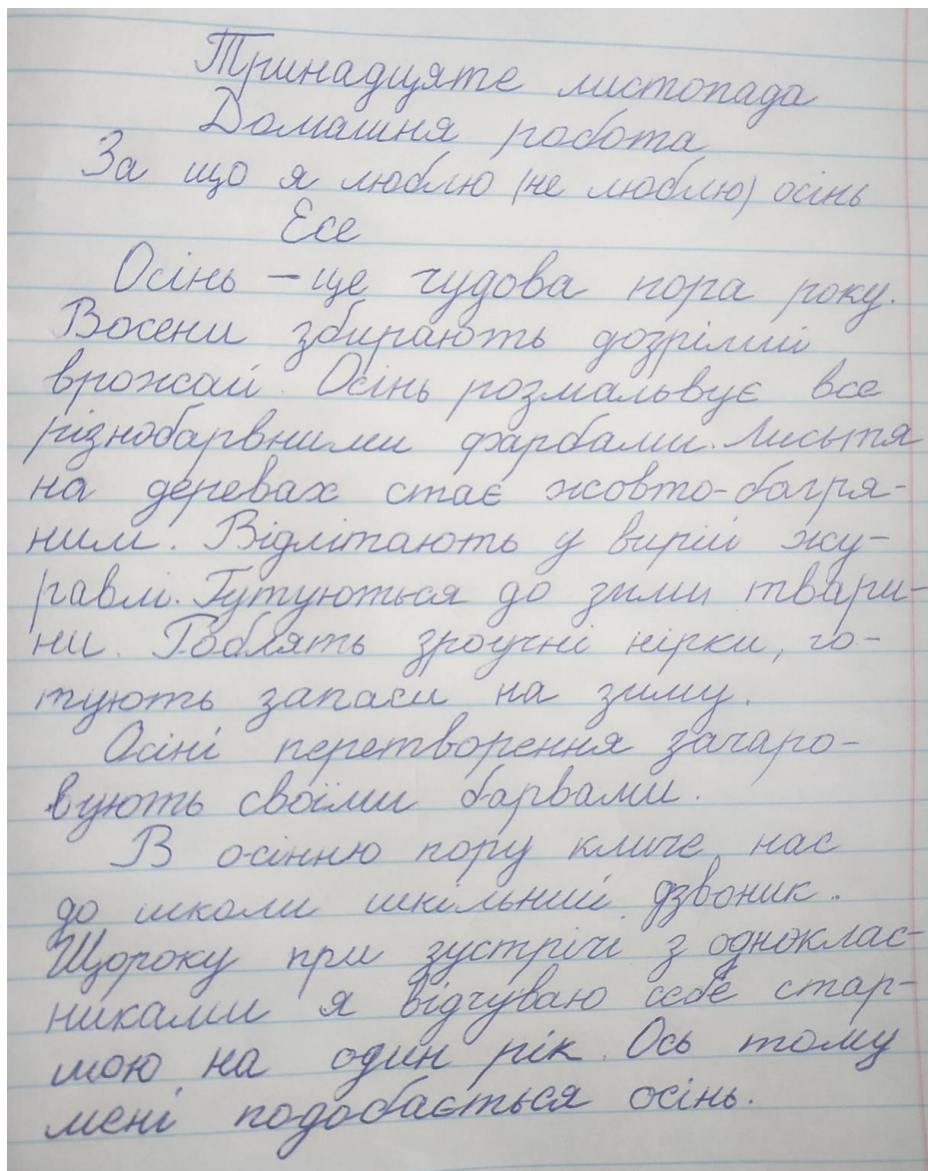 Тринадцяте листопада
Домашня робота
За що я люблю (не люблю) осінь
Есе
Осінь – це чудова пора року.
Восени збирають дозрілий
врожай. Осінь розмальвує все
різнобарвними фарбами. Лисьтя
на деревах стає жовто-багря-
ним. Відлітають у вирій жу-
равлі. Гутуються до зими твари-
ни. Роблять зроучні нірки, го-
тують запаси на зиму.
Осіні перетворення зачаро-
вують своїми барвами.
В осінню пору кличе нас
до школи шкільний дзвоник.
Щороку при зустрічі з однoклас-
никами я відчуваю себе стар-
мою на один рік. Ось тому
мені подобається осінь.